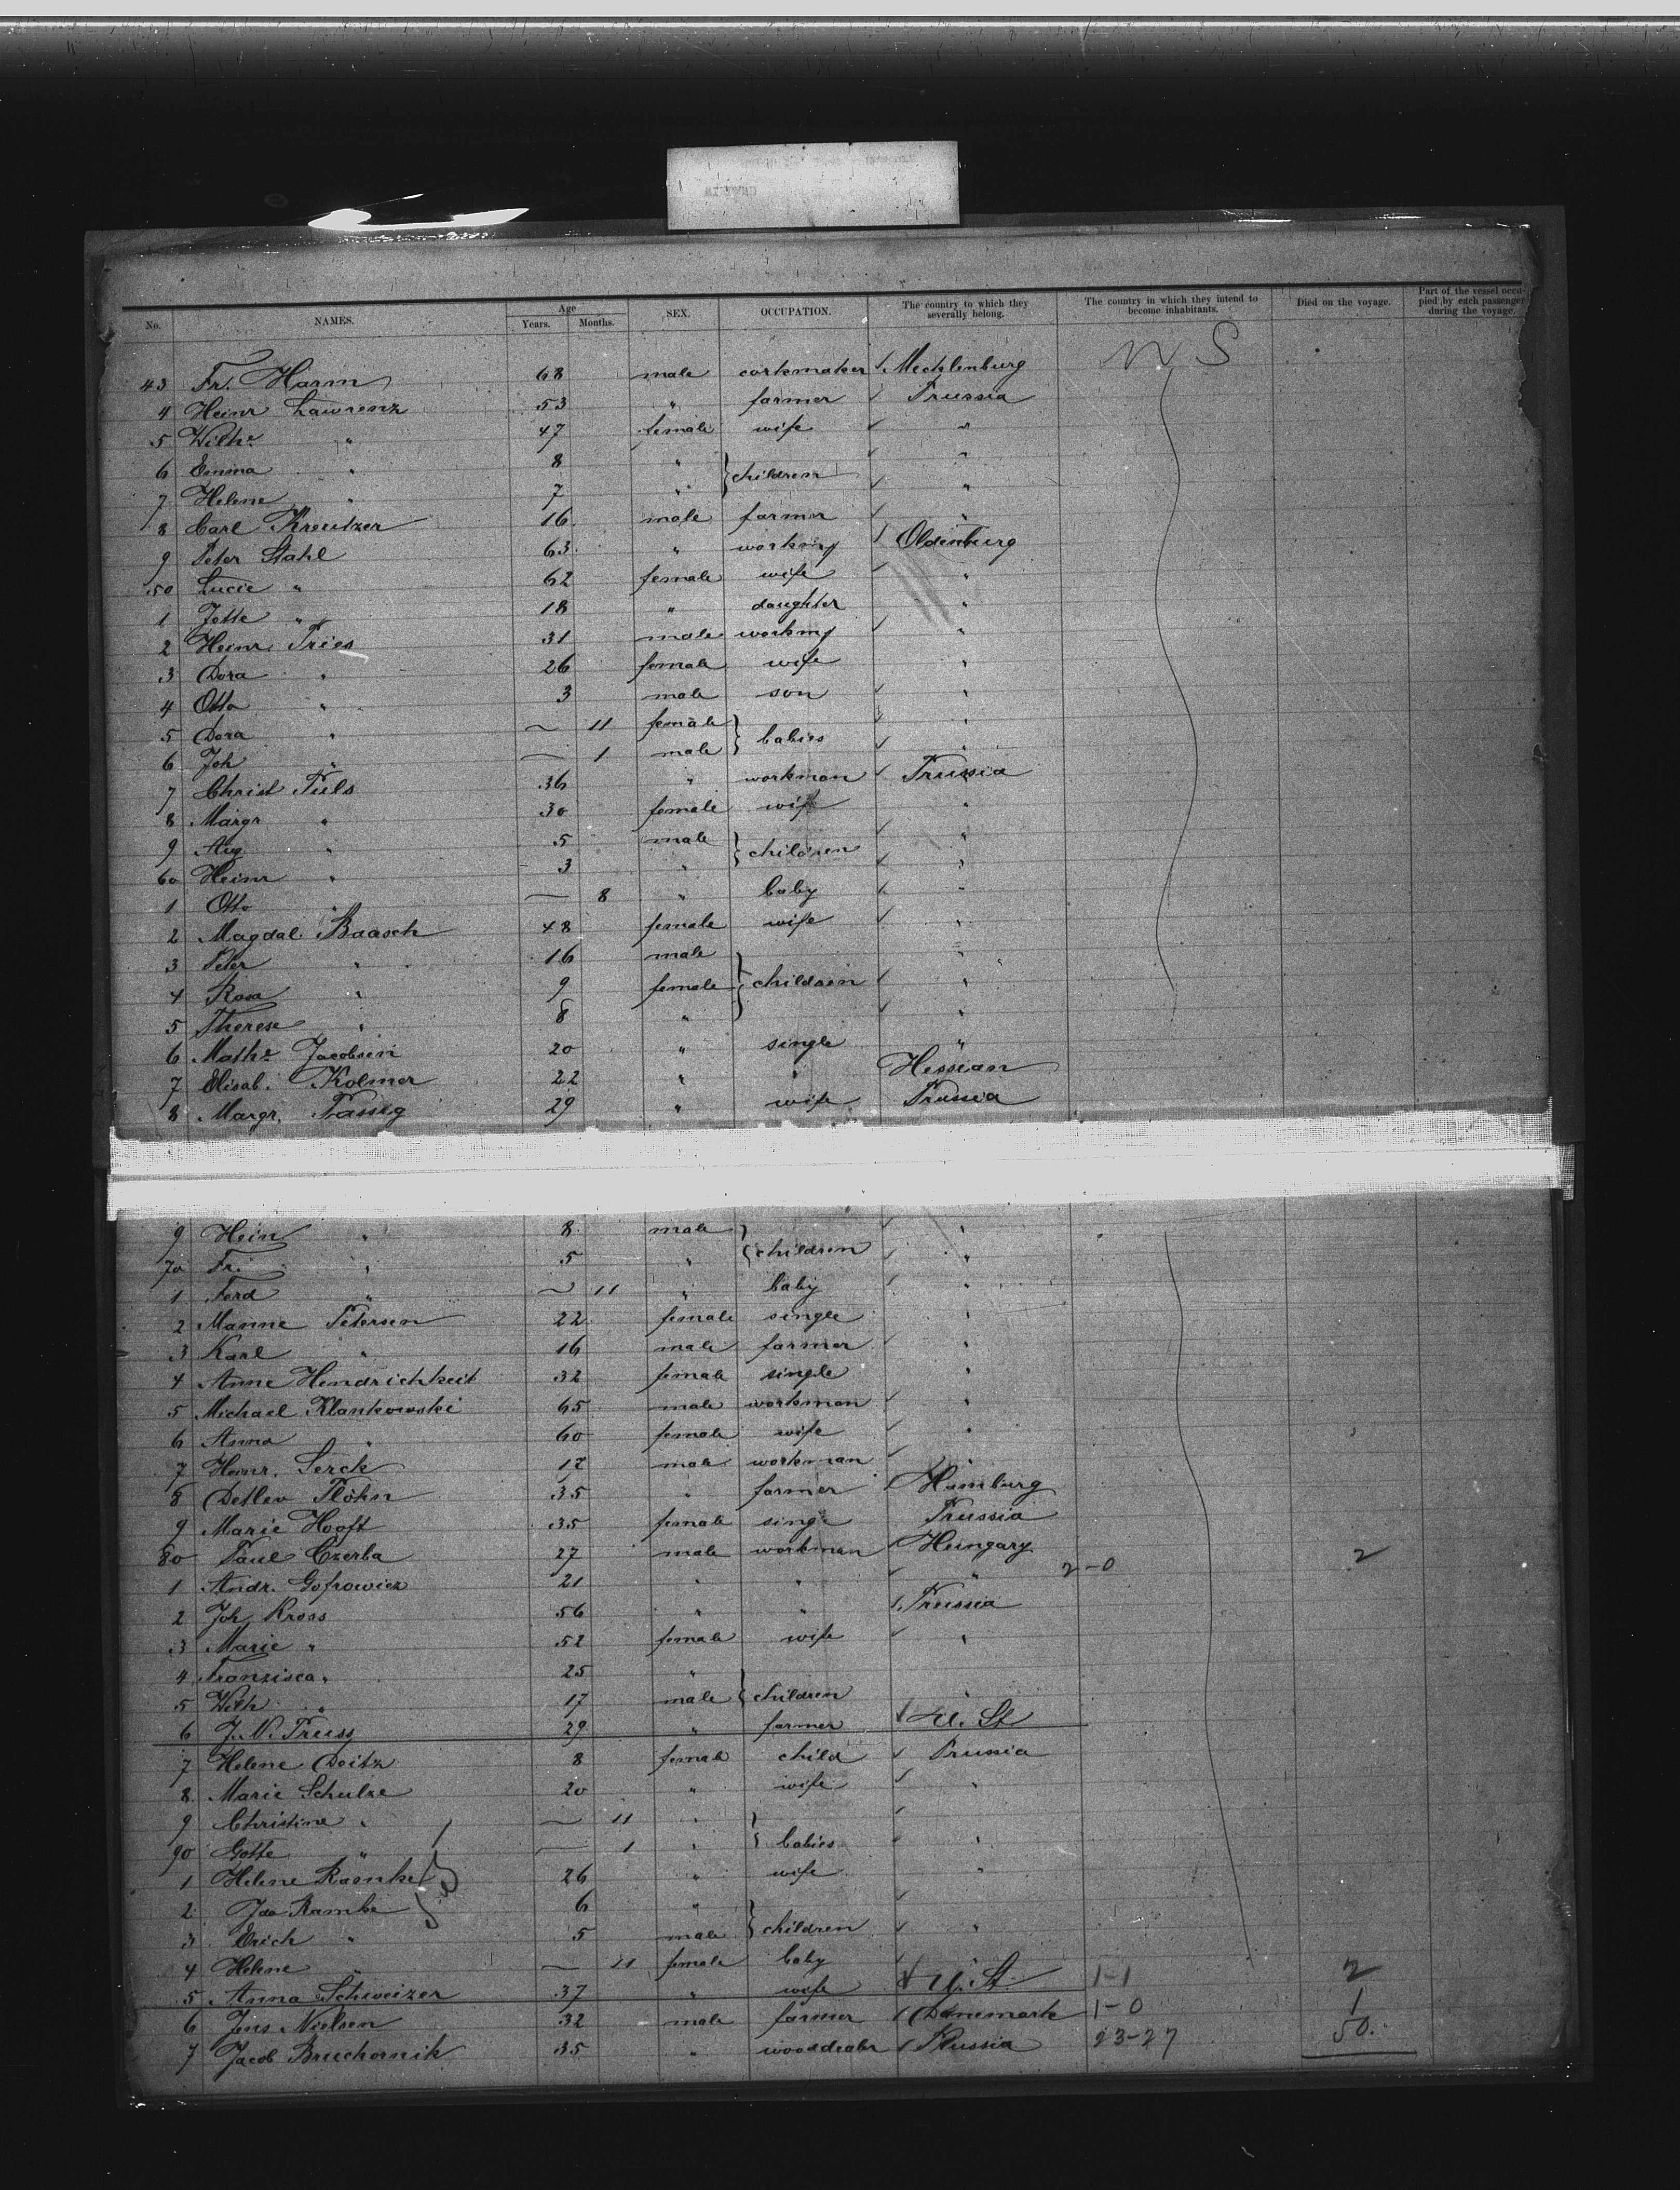 No. NAMES. Age Years. Months. SEX. OCCUPATION. The country to which they severally belong. The country in which they intend to become inhabitants. Died on the voyage. Part of the vessel occupied by each passenger during the voyage.
43 Fr. Harm 68 male corkmaker Mecklenburg
4 Heinr Lawrenz 53 " farmer Prussia
5 Wilhe " 47 female wife "
6 Emma " 8 " "
children
7 Helene " 7 " "
8 Carl Kreutzer 16 male farmer "
9 Peter Stahl 63 " working Oldenburg
50 Lucie " 62 female wife "
1 Jette " 18 " daughter "
2 Heinr. Pries 31 male working "
3 Dora " 26 female wife "
4 Otto " 3 male son "
5 Dora " — 11 female "
babies
6 Joh " — 1 male "
7 Christ Puls 36 " workman Prussia
8 Margr " 30 female wife "
9 Aug " 5 male "
children
60 Heinr " 3 " "
1 Otto " — 8 " baby "
2 Magdal. Baasch 48 female wife "
3 Peter " 16 male "
4 Rosa " 9 female children "
5 Therese " 8 " "
6 Mathe Jacobsen 20 " single "
7 Elisab. Kolmer 22 " " Hessian
8 Margr. Fassig 29 " wife Prussia
9 Hein " 8 male "
children
70 Fr. " 5 " "
1 Ferd " — 11 " baby "
2 Manne Petersen 22 female single "
3 Karl " 16 male farmer "
4 Anne Hendrichkeit 32 female single "
5 Michael Klankowski 65 male workman "
6 Anna " 60 female wife "
7 Heinr. Serck 17 male workman "
8 Detlev Plöhn 35 " farmer Hamburg
9 Marie Hooft 35 female single Prussia
80 Paul Czerba 27 male workman Hungary 2
1 Andr. Gofrowicz 21 " " " 2-0
2 Joh Kross 56 " " Prussia
3 Marie " 52 female wife "
4 Franzisca " 25 "
5 Wilh " 17 male children "
6 J. N. Treiss 29 " farmer U. St
7 Helene Deitz 8 female child Prussia
8 Marie Schulze 20 " wife "
9 Christine " — 11 "
babies
90 Gotte " — 1 " "
1 Helene Raenke 26 " wife "
2 Ida Rambe 6 "
children
3 Erich " 5 male "
4 Helene " — 11 female baby "
5 Anna Schweizer 37 " wife U. St. 1-1 2
6 Jens Nielsen 32 male farmer Danemark 1-0 1
7 Jacob Bruchornik 35 " wooddealer Russia 23-27 50.